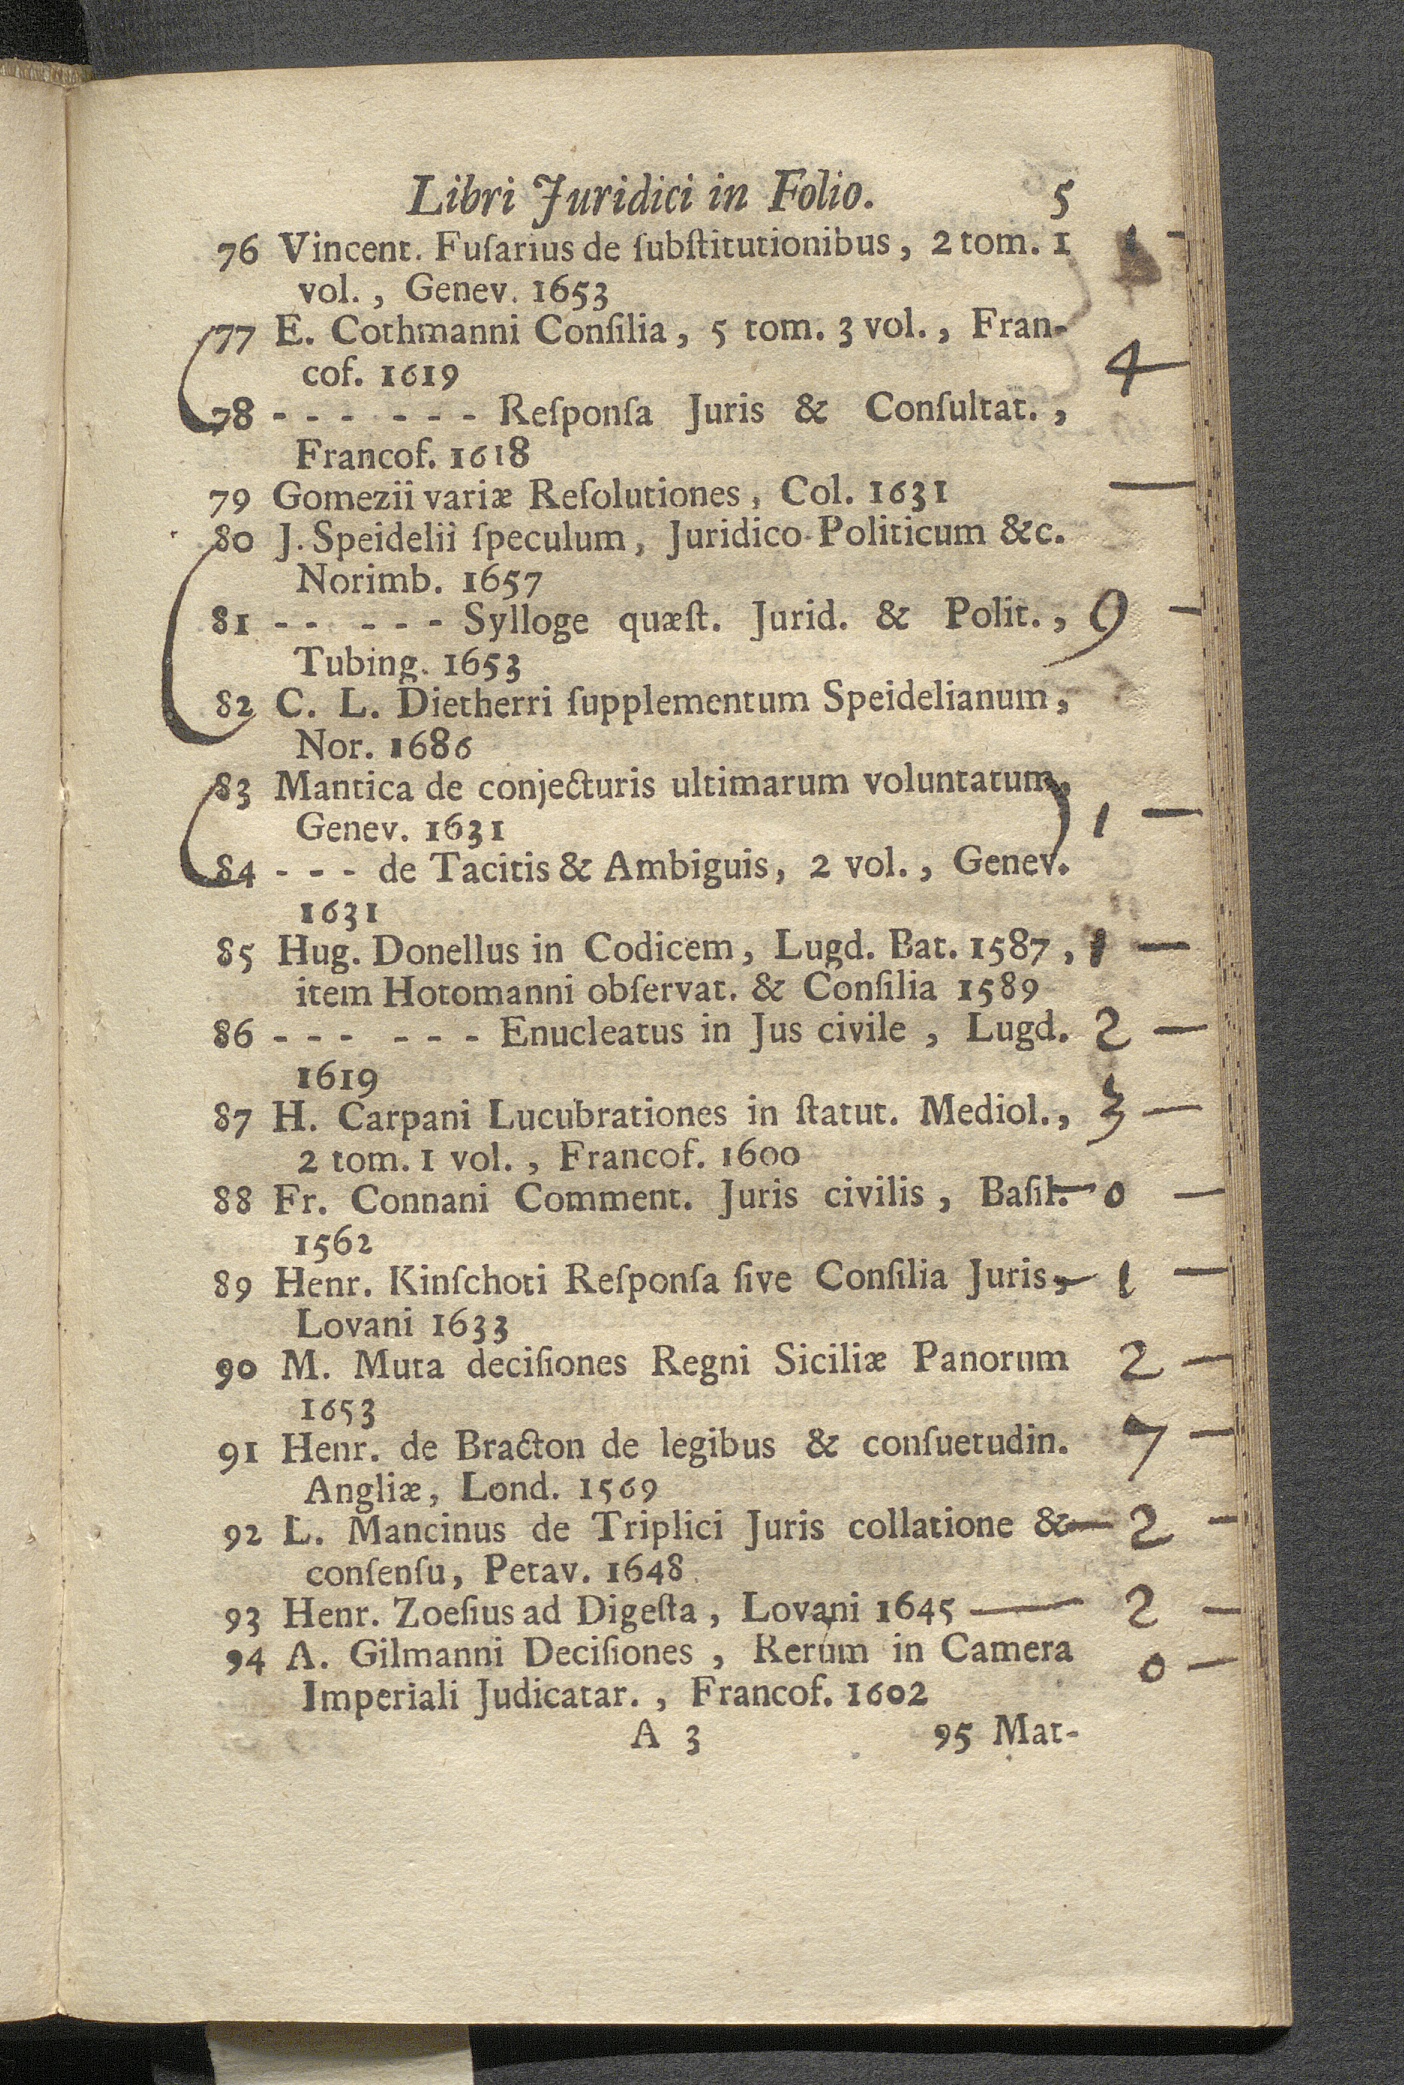 Libri Juridici in Folio. 5
76 Vincent. Fuſarius de ſubſtitutionibus, 2 tom. 1 1 -
vol., Genev. 1653
77 E. Cothmanni Conſilia, 5 tom. 3 vol., Fran-
cof. 1619 4 —
78 - - - - - - Reſponſa Juris & Conſultat.,
Francof. 1618
79 Gomezii variæ Reſolutiones, Col. 1631 —
80 J. Speidelii ſpeculum, Juridico-Politicum &c.
Norimb. 1657
81 - - - - - Sylloge quæſt. Jurid. & Polit., 9 —
Tubing. 1653
82 C. L. Dietherri ſupplementum Speidelianum,
Nor. 1686
83 Mantica de conjecturis ultimarum voluntatum,
Genev. 1631 1 —
84 - - - de Tacitis & Ambiguis, 2 vol., Genev.
1631
85 Hug. Donellus in Codicem, Lugd. Bat. 1587, 1 —
item Hotomanni obſervat. & Conſilia 1589
86 - - - - - - Enucleatus in Jus civile, Lugd. 2 —
1619
87 H. Carpani Lucubrationes in ſtatut. Mediol., 3 —
2 tom. 1 vol., Francof. 1600
88 Fr. Connani Comment. Juris civilis, Baſil. — 0 —
1562
89 Henr. Kinſchoti Reſponſa ſive Conſilia Juris, — 1 —
Lovani 1633
90 M. Muta deciſiones Regni Siciliæ Panorum 2 —
1653
91 Henr. de Bracton de legibus & conſuetudin. 7 —
Angliæ, Lond. 1569
92 L. Mancinus de Triplici Juris collatione & — 2 —
conſenſu, Petav. 1648
93 Henr. Zoeſius ad Digeſta, Lovani 1645 — 2 —
94 A. Gilmanni Deciſiones, Rerum in Camera 0 —
Imperiali Judicatar., Francof. 1602
A 3 95 Mat-